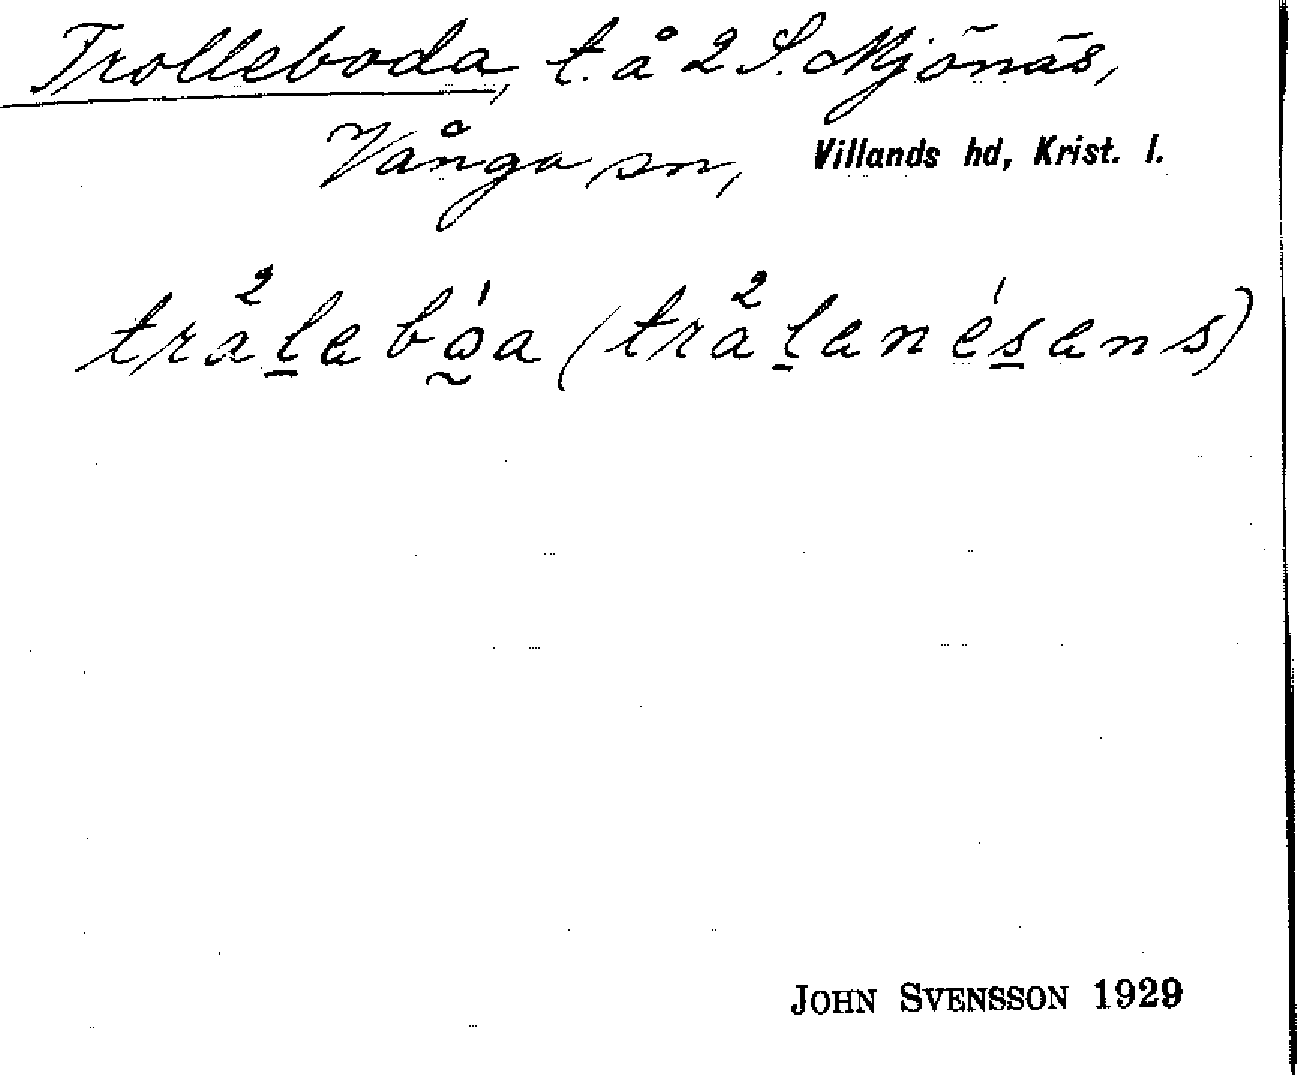 Trolleboda, t. å 2 S. Mjönäs,
Vånga sn, Villands hd, Krist. l.
trå²lebó̰a (trå²lanésans)
JOHN SVENSSON 1929